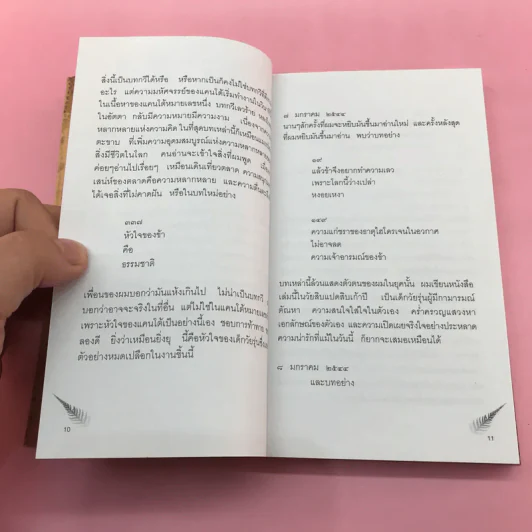 สิ่งนี้เป็นบทกวีได้หรือ หรือหากเป็นก็คงไม่ใช่บทกวีที่ดี
อะไร แต่ความมหัศจรรย์ของแคนได้เริ่มทำงานใน
ในเนื้อหาของแคนได้หมายเลขหนึ่ง บทกวีเลวร้าย
ในอัตตา กลับมีความหมายมีความงาม เนื่องจาก
หลากหลายแห่งความคิด ในที่สุดบทเหล่านี้ก็เหมือน
ตะขาบ ที่เพิ่มความอุดมสมบูรณ์แห่งความหลากหลาย
สิ่งมีชีวิตในโลก คนอ่านจะเข้าใจสิ่งที่ผมพูด เมื่อ
ค่อยๆอ่านไปเรื่อยๆ เหมือนเดินเที่ยวตลาด ความสนุก
เสน่ห์ของตลาดคือความหลากหลาย และความตื่น
ได้เจอสิ่งที่ไม่คาดฝัน หรือในบทใหม่อย่าง
๓๓๗
หัวใจของข้า
คือ
ธรรมชาติ
เพื่อนของผมบอกว่ามันแห้งเกินไป ไม่น่าเป็นบทกวี
บอกว่าอาจจะจริงในที่อื่น แต่ไม่ใช่ในแคนได้
เพราะหัวใจของแคนได้เป็นอย่างนี้เอง ชอบการท้าทาย
ลองดี ยิ่งว่าเหมือนยิ่งยุ นี้คือหัวใจของเด็กวัยรุ่น
ตัวอย่างหมดเปลือกในงานชิ้นนี้
10
๗ มกราคม ๒๕๔๔
นานๆสักครั้งที่ผมจะหยิบมันขึ้นมาอ่านใหม่ และครั้งหลังสุด
ที่ผมหยิบมันขึ้นมาอ่าน พบว่าบทอย่าง
๑๙
แล้วข้าจึงอยากทำความเลว
เพราะโลกนี้ว่างเปล่า
หงอยเหงา
๑๔๙
ความแก่ชราของธาตุไฮโดรเจนในอวกาศ
ไม่อาจลด
ความเจ้าอารมณ์ของข้า
บทเหล่านี้ล้วนแสดงตัวตนของผมในยุคนั้น ผมเขียนหนังสือ
เล่มนี้ในวัยสิบแปดสิบเก้าปี เป็นเด็กวัยรุ่นผู้มีกามารมณ์
ตัณหา ความสนใจใส่ใจในตัวเอง คร่ำครวญแสวงหา
เอกลักษณ์ของตัวเอง และความเปิดเผยจริงใจอย่างประหลาด
ความน่ารักที่แม้ในวันนี้ ก็ยากจะเสมอเหมือนได้
๘ มกราคม ๒๕๔๔
และบทอย่าง
11